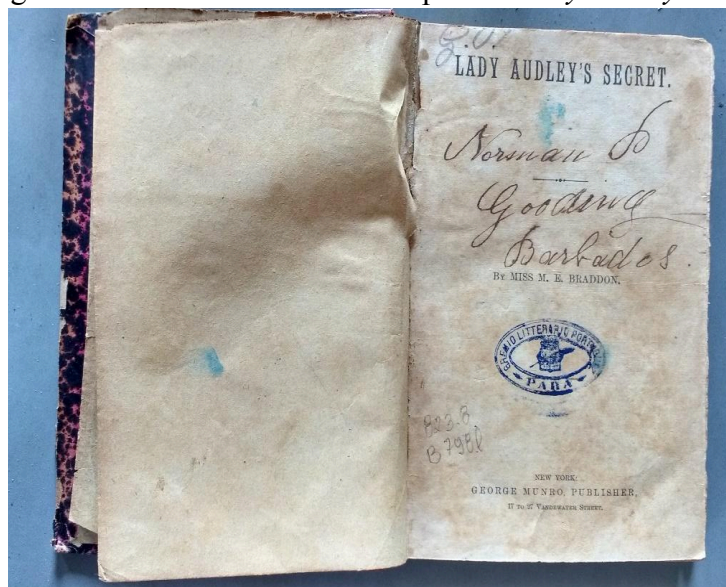 LADY AUDLEY'S SECRET.
Norman
Gooding
Barbados.
BY MISS M. E. BRADDON.
GREMIO LITTERARIO PORTUGUEZ
PARÁ
823.8
B798l
NEW YORK:
GEORGE MUNRO, PUBLISHER,
17 TO 27 VANDEWATER STREET.